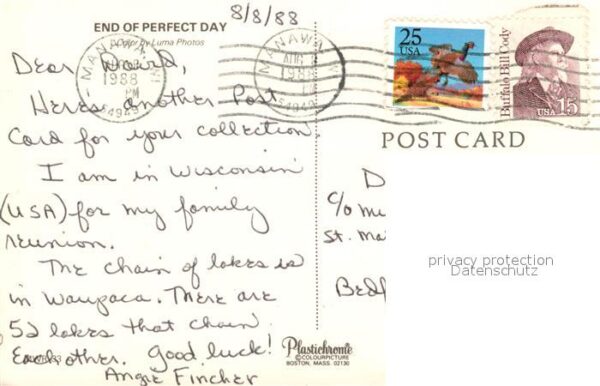 8/8/88
END OF PERFECT DAY
Color by Luma Photos
MANAWA
1988
PM
54949
MANAWA
AUG
1988
54949
25
USA
Buffalo Bill Cody
USA 15
POST CARD
Dear David,
Heres another Post
Card for your collection
I am in Wisconsin
(USA) for my family
reunion.
The chain of lakes is
in Waupaca. There are
52 lakes that chain
Each other. Good luck!
Angie Fincher
D
c/o
St. Ma
Bedf
privacy protection
Datenschutz
Plastichrome
® COLOURPICTURE
BOSTON, MASS. 02130